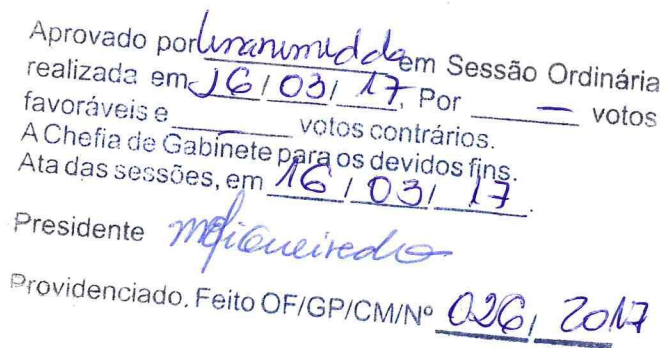 Aprovado por unanimidade em Sessão Ordinária
realizada em 16/03/17, Por — votos
favoráveis e ______ votos contrários.
A Chefia de Gabinete para os devidos fins.
Ata das sessões, em 16/03/17.
Presidente
Providenciado. Feito OF/GP/CM/Nº 026/2017